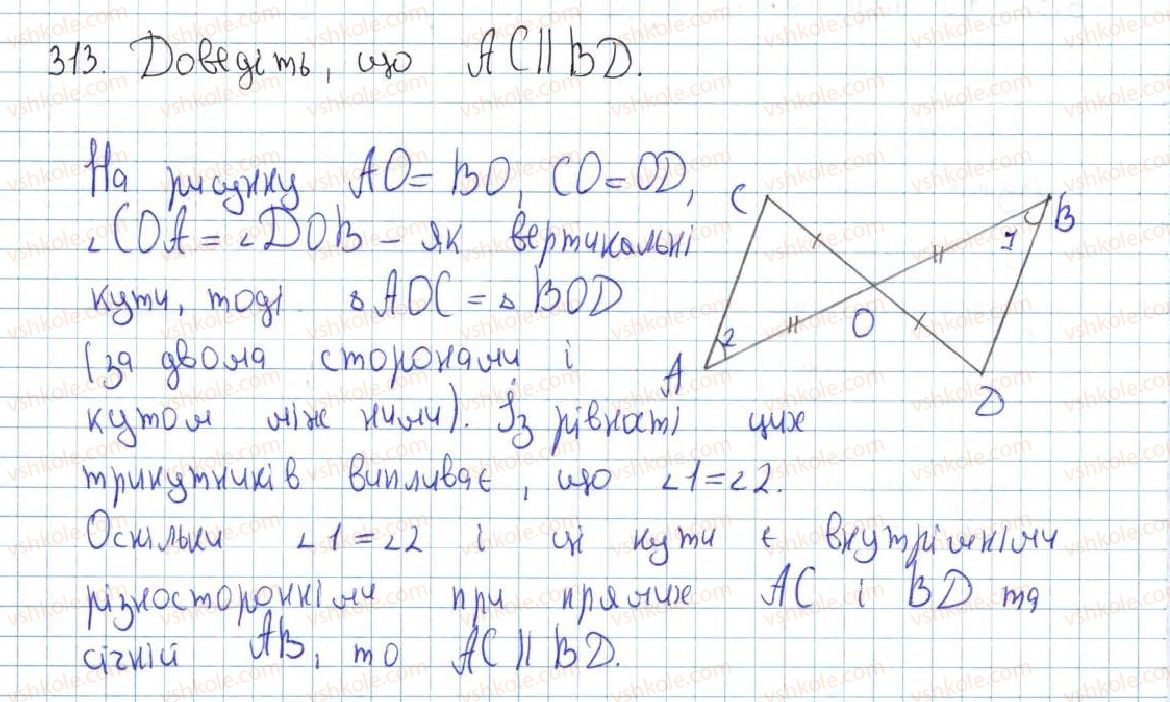 313. Доведіть, що AC∥BD.
На рисунку AO=BO, CO=OD,
∠COA=∠DOB – як вертикальні
кути, тоді ΔAOC=ΔBOD
(за двома сторонами і
кутом між ними). Із рівності цих
трикутників випливає, що ∠1=∠2.
Оскільки ∠1=∠2 і ці кути є внутрішніми
різносторонніми при прямих AC і BD та
січній AB, то AC∥BD.
C
B
1
O
2
A
D
vshkole.com